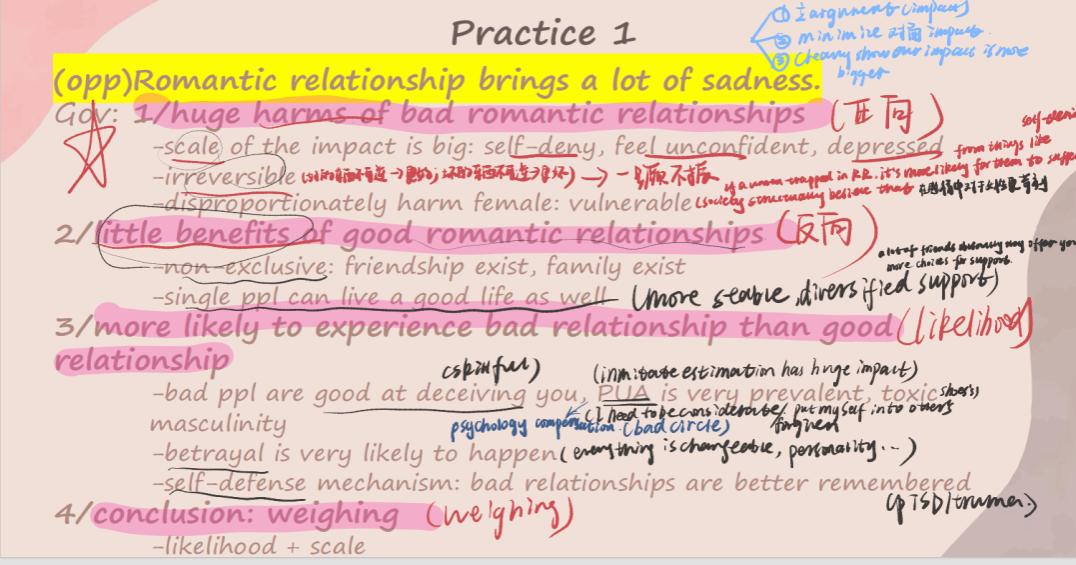 Practice 1
① 主argument (impact)
② minimize 对面 impact
③ cleavy show our impact is more bigger
(opp)Romantic relationship brings a lot of sadness.
Gov: 1/huge harms of bad romantic relationships (正向)
-scale of the impact is big: self-deny, feel unconfident, depressed
from things like
-irreversible
if a woman trapped in RR. it's more likely for them to suffer
-disproportionately harm female: vulnerable (society structurally believe that
2/little benefits of good romantic relationships (反向)
a lot of friends diversity may offer you more choices for support.
-non-exclusive: friendship exist, family exist
-single ppl can live a good life as well (more stable, diversified support)
3/more likely to experience bad relationship than good (likelihood)
relationship
(skillful) (inmitate estimation has huge impact)
-bad ppl are good at deceiving you, PUA is very prevalent, toxic
(I need to be considerate / put myself into others shoes)
masculinity
psychology compensation. (bad circle)
-betrayal is very likely to happen (everything is changeable, personality...)
-self-defense mechanism: bad relationships are better remembered
4/conclusion: weighing (weighing)
-likelihood + scale